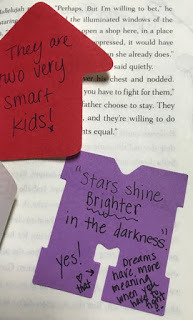 Hallelujah
"Perhaps. But I'm willing to bet," he
the illuminated windows of the
open a shop here, in a place
oppressed, it would have
she already does."
said quietly.
over his chest and nodded.
you have to fight for them,"
father choose to stay. They
and, and they're willing to do
nts equal."
They are
two very
smart
kids!
"Stars shine
Brighter
in the darkness."
yes!
that
Dreams
have more
meaning
when you
have to
for